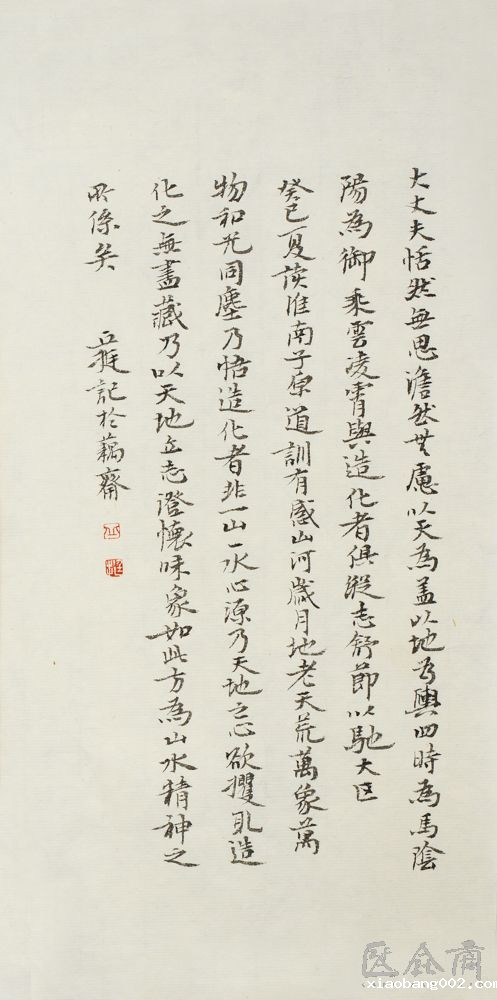 大丈夫恬然無思澹然無慮以天為蓋以地為輿四時為馬陰
陽為御乘雲凌霄與造化者俱縱志舒節以馳大区
癸巳夏读淮南子原道訓有感山河歲月地老天荒萬象萬
物和光同塵乃悟造化者非一山一水心源乃天地之心欲攫取造
化之無盡藏乃以天地立志澄懷味象如此方為山水精神之
所係矣
記於藕齋
xiaobang002.com